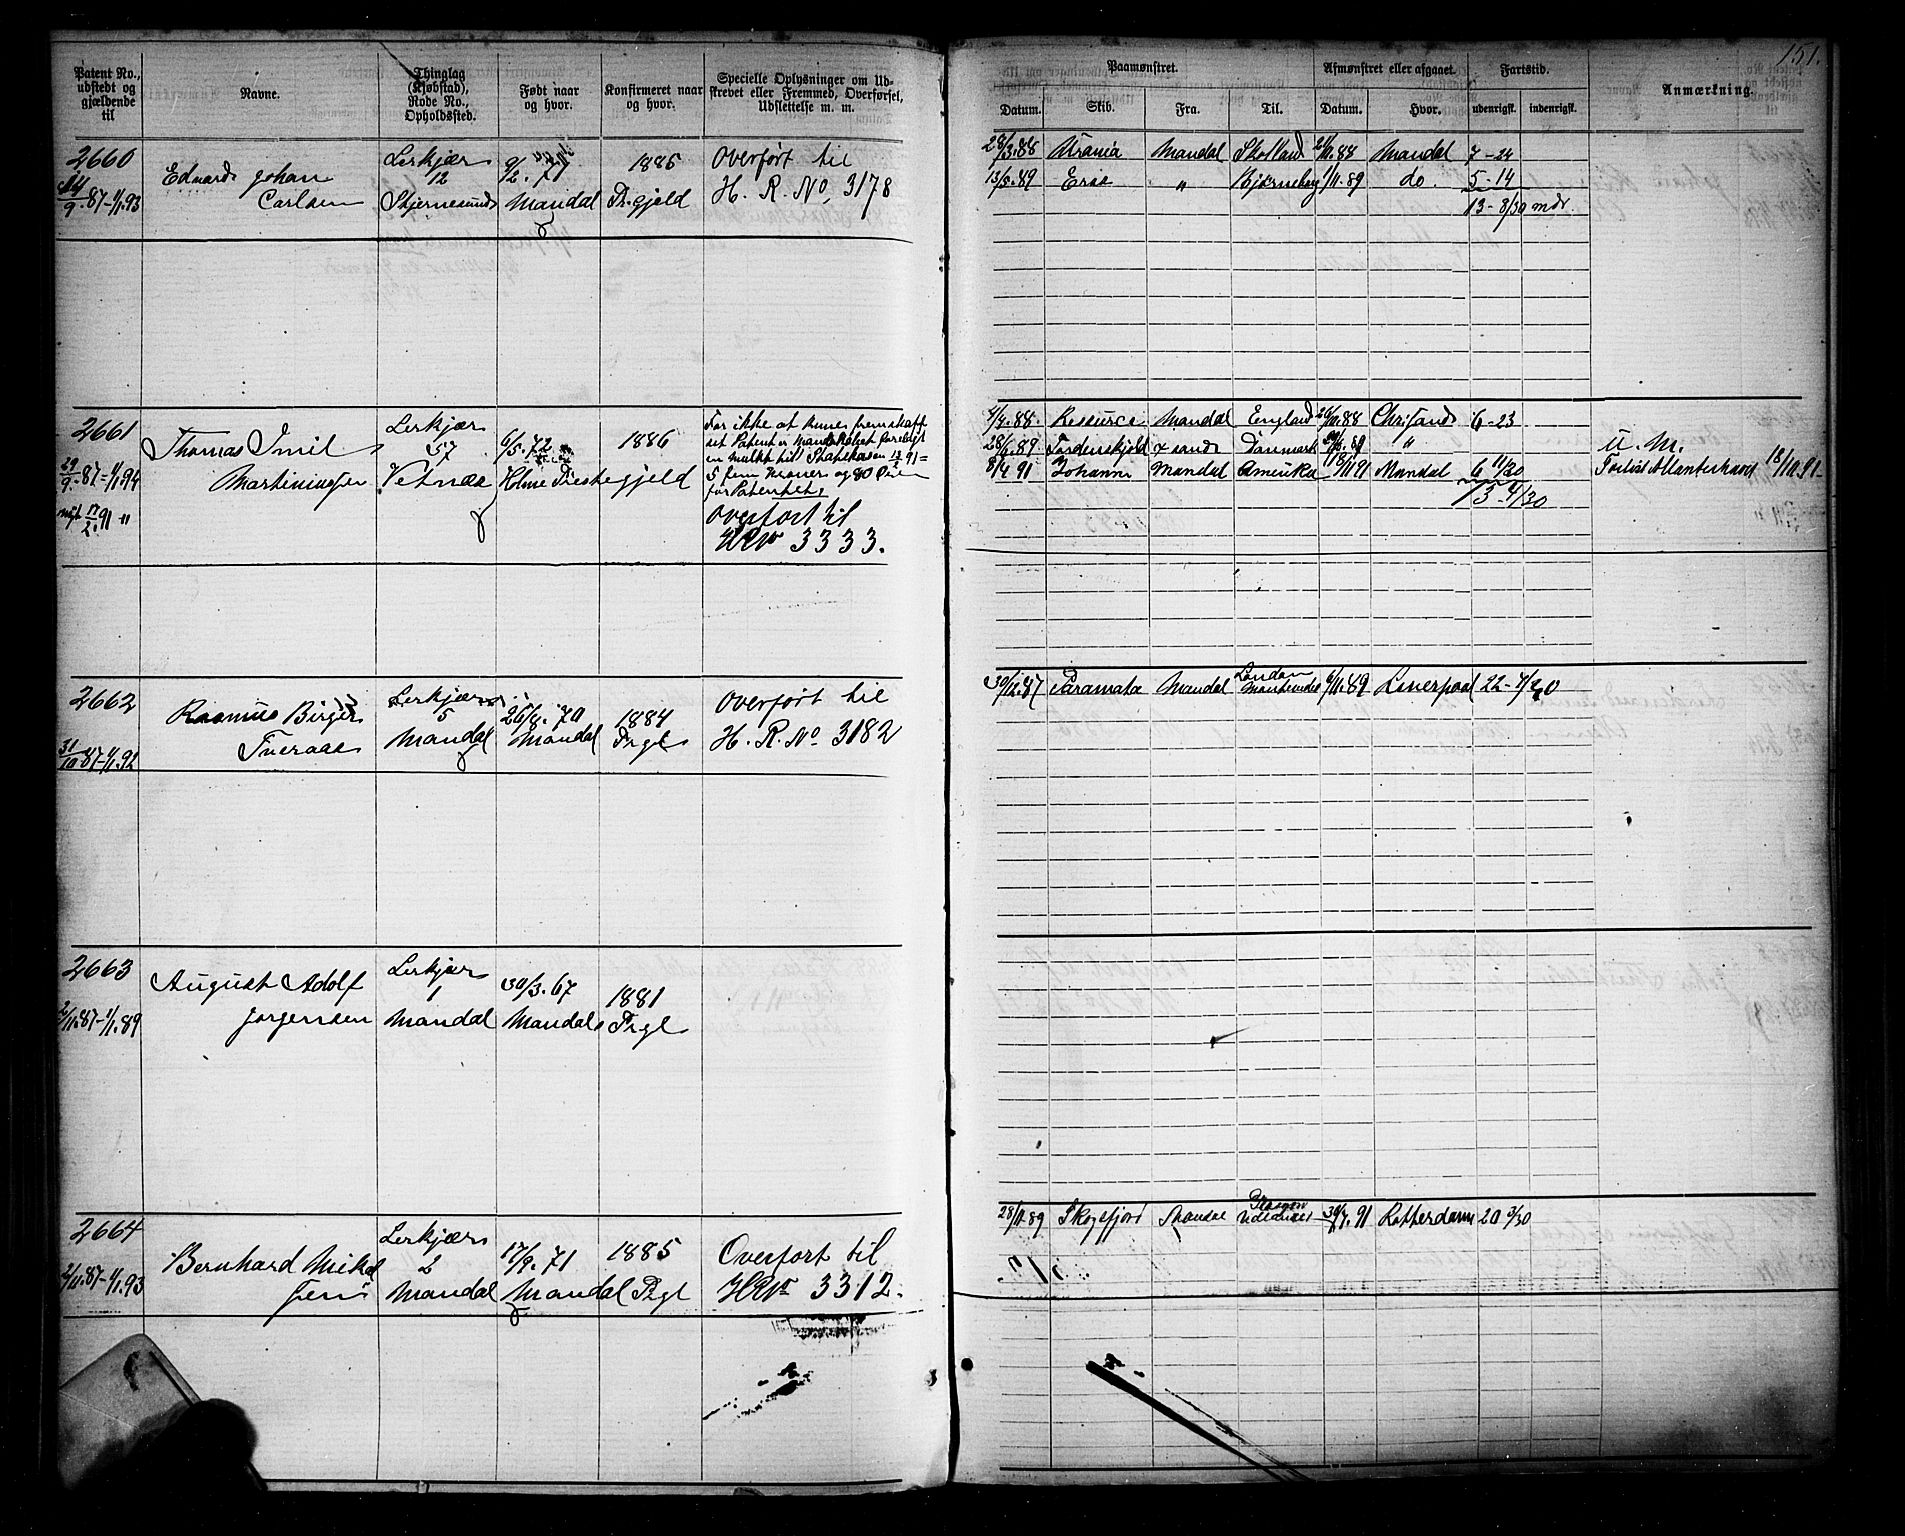 151.
Patent No., udstedt og gjældende til
Navne.
Thinglag (Kjøbstad), Rode No., Opholdssted.
Født naar og hvor.
Konfirmeret naar og hvor.
Specielle Oplysninger om Udskrevet eller Fremmed, Overførsel, Udslettelse m. m.
Paamønstret.
Datum. Skib. Fra. Til.
Afmønstret eller afgaaet.
Datum. Hvor.
Fartstid.
udenrigsk. indenrigsk.
Anmærkning
2660
/9.87-1/1.93
Edvard Johan
Carlsen
Lerkjær
12
Skjernesund
9/2.71
Mandal
1886
Pr.gjeld
Overført til
H. R. No, 3178
28/3.88 Urania Mandal Skotland 21/11.88 Mandal 7-24
13/5.89 Ersa " Bjørneborg 1/11.89 do. 5-14
13-8/30 mdr.
2661
29/9.87-1/1.94
nyt 17/2.91 "
Thomas Emil
Martiniussen
Lerkjær
57
Vetnæs
6/5.72
Holme Prestegjeld
1886
For ikke at kunne fremskaffe
sit Patent er Mandskabet forelagt
en mulkt til Statskassen 17/2 91 =
5 fem Kroner og 80 Øre
for Patentet.
Overført til
HRNo 3333.
4/4.88. Ressource Mandal England 26/10.88 Chrisand 6-23
28/6.89 Tordenskjold X sand Danmark /8.89 "
8/4 91 Johanne Mandal Amerika 18/10 91 Mandal 6 11/30
13-4/30
U. M.
Forlist Atlanterhavet 18/10.91-
2662
31/10.87-1/1.92
Rasmus Birger
Tveraas
Lerkjær
5
Mandal
26/8.70
Mandal
1884
Prgl
Overført til
H. R. No 3182
30/12.87 Paramata Mandal London 6/11.89 Liverpool 22-7/30
2663
2/11.87-1/1.89
August Adolf
Jørgensen
Lerkjær
1
Mandal
30/3.67
Mandal
1881
Prgl
2664
2/11.87-1/1.93
Bernhard Mikal
Jens
Lerkjær
2
Mandal
17/9.71
Mandal
1885
Prgl
Overført til
HRNo 3312.
28/11.89 Skogsfjord Mandal 30/7.91 Rotterdam 20 2/30